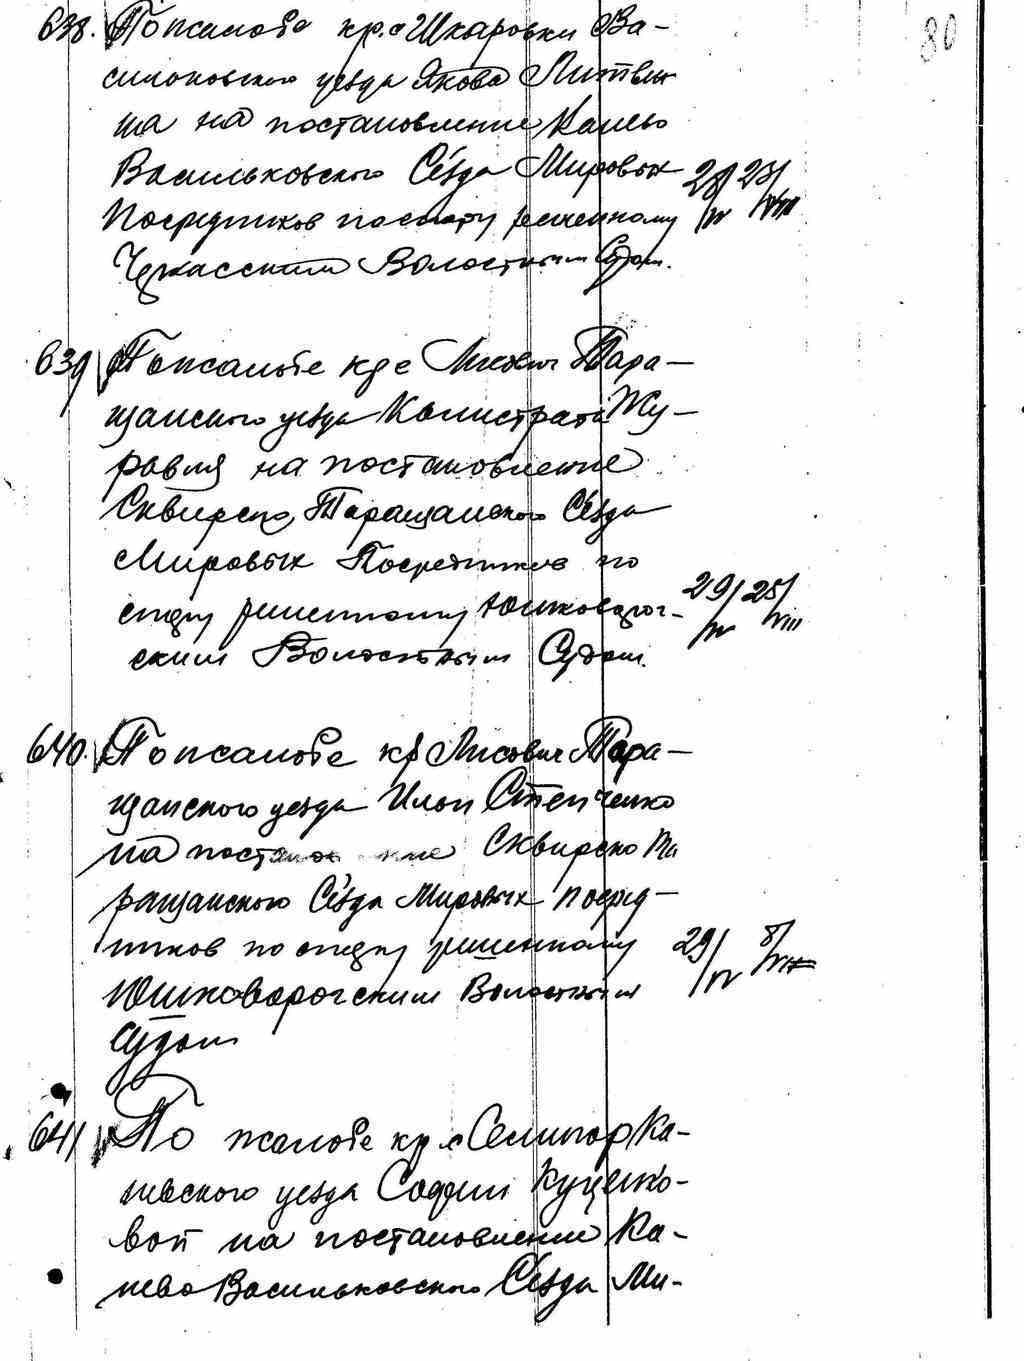 80
638. По жалобе кр. с Шкаровки Ва-
сильковского уезда Якова Литвин
на на постановление Канево
Васильковского Сезда Мировых
Посредников по спору решенному 28/IV 23/VIII
Черкасским Волостным Судом.
639 По жалобе кр с Тара-
щанского уезда Калистрата Жу-
равля на постановление
Сквирско Таращанского Сезда
Мировых Посредников по
спору решенному Юшковорог- 29/IV 25/VIII
ским Волостным Судом.
640. По жалобе кр Лисович Тара-
щанского уезда Ильи Степченко
на постановление Сквирско Та
ращанского Сезда Мировых посред-
ников по спору решенному 29/IV 8/VII
Юшковорогским Волостным
Судом
641 По жалобе кр с Селищ Ка-
невского уезда Софии Куценко-
вой на постановление Ка-
нево Васильковского Сезда Ми-